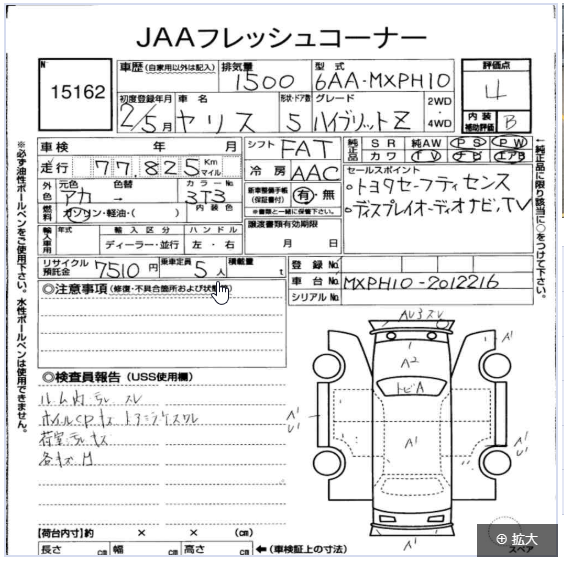 JAAフレッシュコーナー
N
15162
車歴 (自家用以外は記入)
排気量
1500
型式
6AA-MXPH10
評価点
4
初度登録年月
2/5月
車名
ヤリス
形状・ドア数
5
グレード
ハイブリットZ
2WD
4WD
内装
補助評価
B
車検 年 月
シフト
FAT
純正品
SR 純AW PS PW
カワ TV ナビ エアB
走行 77,825 Km
マイル
冷房
AAC
セールスポイント
・トヨタセーフティセンス
・ディスプレイオーディオナビ,TV
外色
元色 色替
アカ →
カラーNo.
3T3
新車整備手帳
(保証書付)
有・無
※書類と一緒に保管下さい。
燃料
ガソリン・軽油・( )
内装色
輸入車用
年式
輸入区分
ディーラー・並行
ハンドル
左・右
譲渡書類有効期限
月 日
リサイクル
預託金
7510円
乗車定員
5人
積載量
t
登録No.
車台No. MXPH10-2012216
シリアルNo.
◎注意事項 (修復・不具合箇所および状態
◎検査員報告 (USS使用欄)
ルーム内 スレ
荷室
各キズ
AU3 スレ
A1
A2
トビA
A1
A1
【荷台内寸】約 × × (cm)
長さ cm 幅 cm 高さ cm
←(車検証上の寸法)
スペア
拡大
※必ず油性ボールペンをご使用下さい。水性ボールペンは使用できません。
←純正品に限り該当に○をつけて下さい。